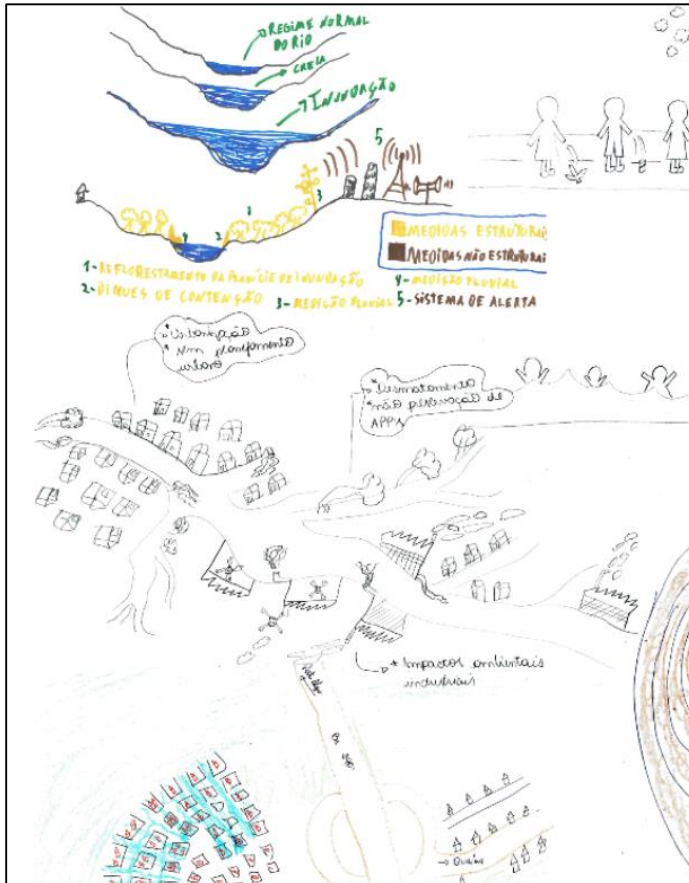 REGIME NORMAL
DO RIO
CHEIA
INUNDAÇÃO
5
1
3
4
2
MEDIDAS ESTRUTURAIS
MEDIDAS NÃO ESTRUTURAIS
1-REFLORESTAMENTO DA PLANÍCIE DE INUNDAÇÃO
4-MEDIÇÃO FLUVIAL
2-DIQUES DE CONTENÇÃO
3-MEDIÇÃO PLUVIAL
5-SISTEMA DE ALERTA
* Urbanização
* sem planejamento
urbano
* Desmatamento
* não preservação de
APP's
* Impactos ambientais
industriais